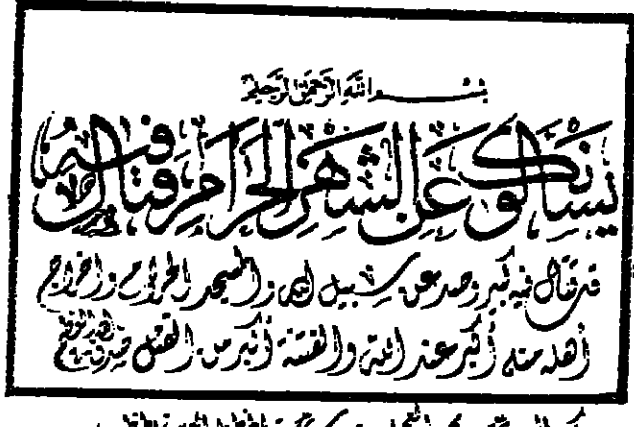 بسم الله الرحمن الرحيم
يسألونك عن الشهر الحرام قتال فيه
قل قتال فيه كبير وصد عن سبيل الله والمسجد الحرام وإخراج
أهله منه أكبر عند الله والفتنة أكبر من القتل صدق الله العظيم